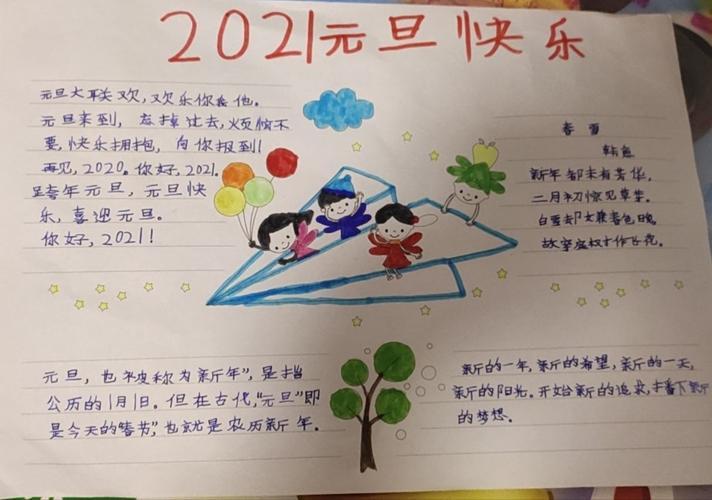 2021元旦快乐
元旦大联欢,欢乐你我他。
元旦来到, 忘掉过去,烦恼不
要,快乐拥抱, 向你报到!
再见, 2020。你好, 2021。
跨年元旦, 元旦快
乐, 喜迎元旦。
你好, 2021!
春雪
韩愈
新年都未有芳华,
二月初惊见草芽。
白雪却嫌春色晚,
故穿庭树作飞花。
元旦, 也被称为“新年”, 是指
公历的1月1日。但在古代,“元旦”即
是今天的“春节”,也就是农历新年。
新的一年,新的希望,新的一天,
新的阳光。开始新的追求,播下新
的梦想。